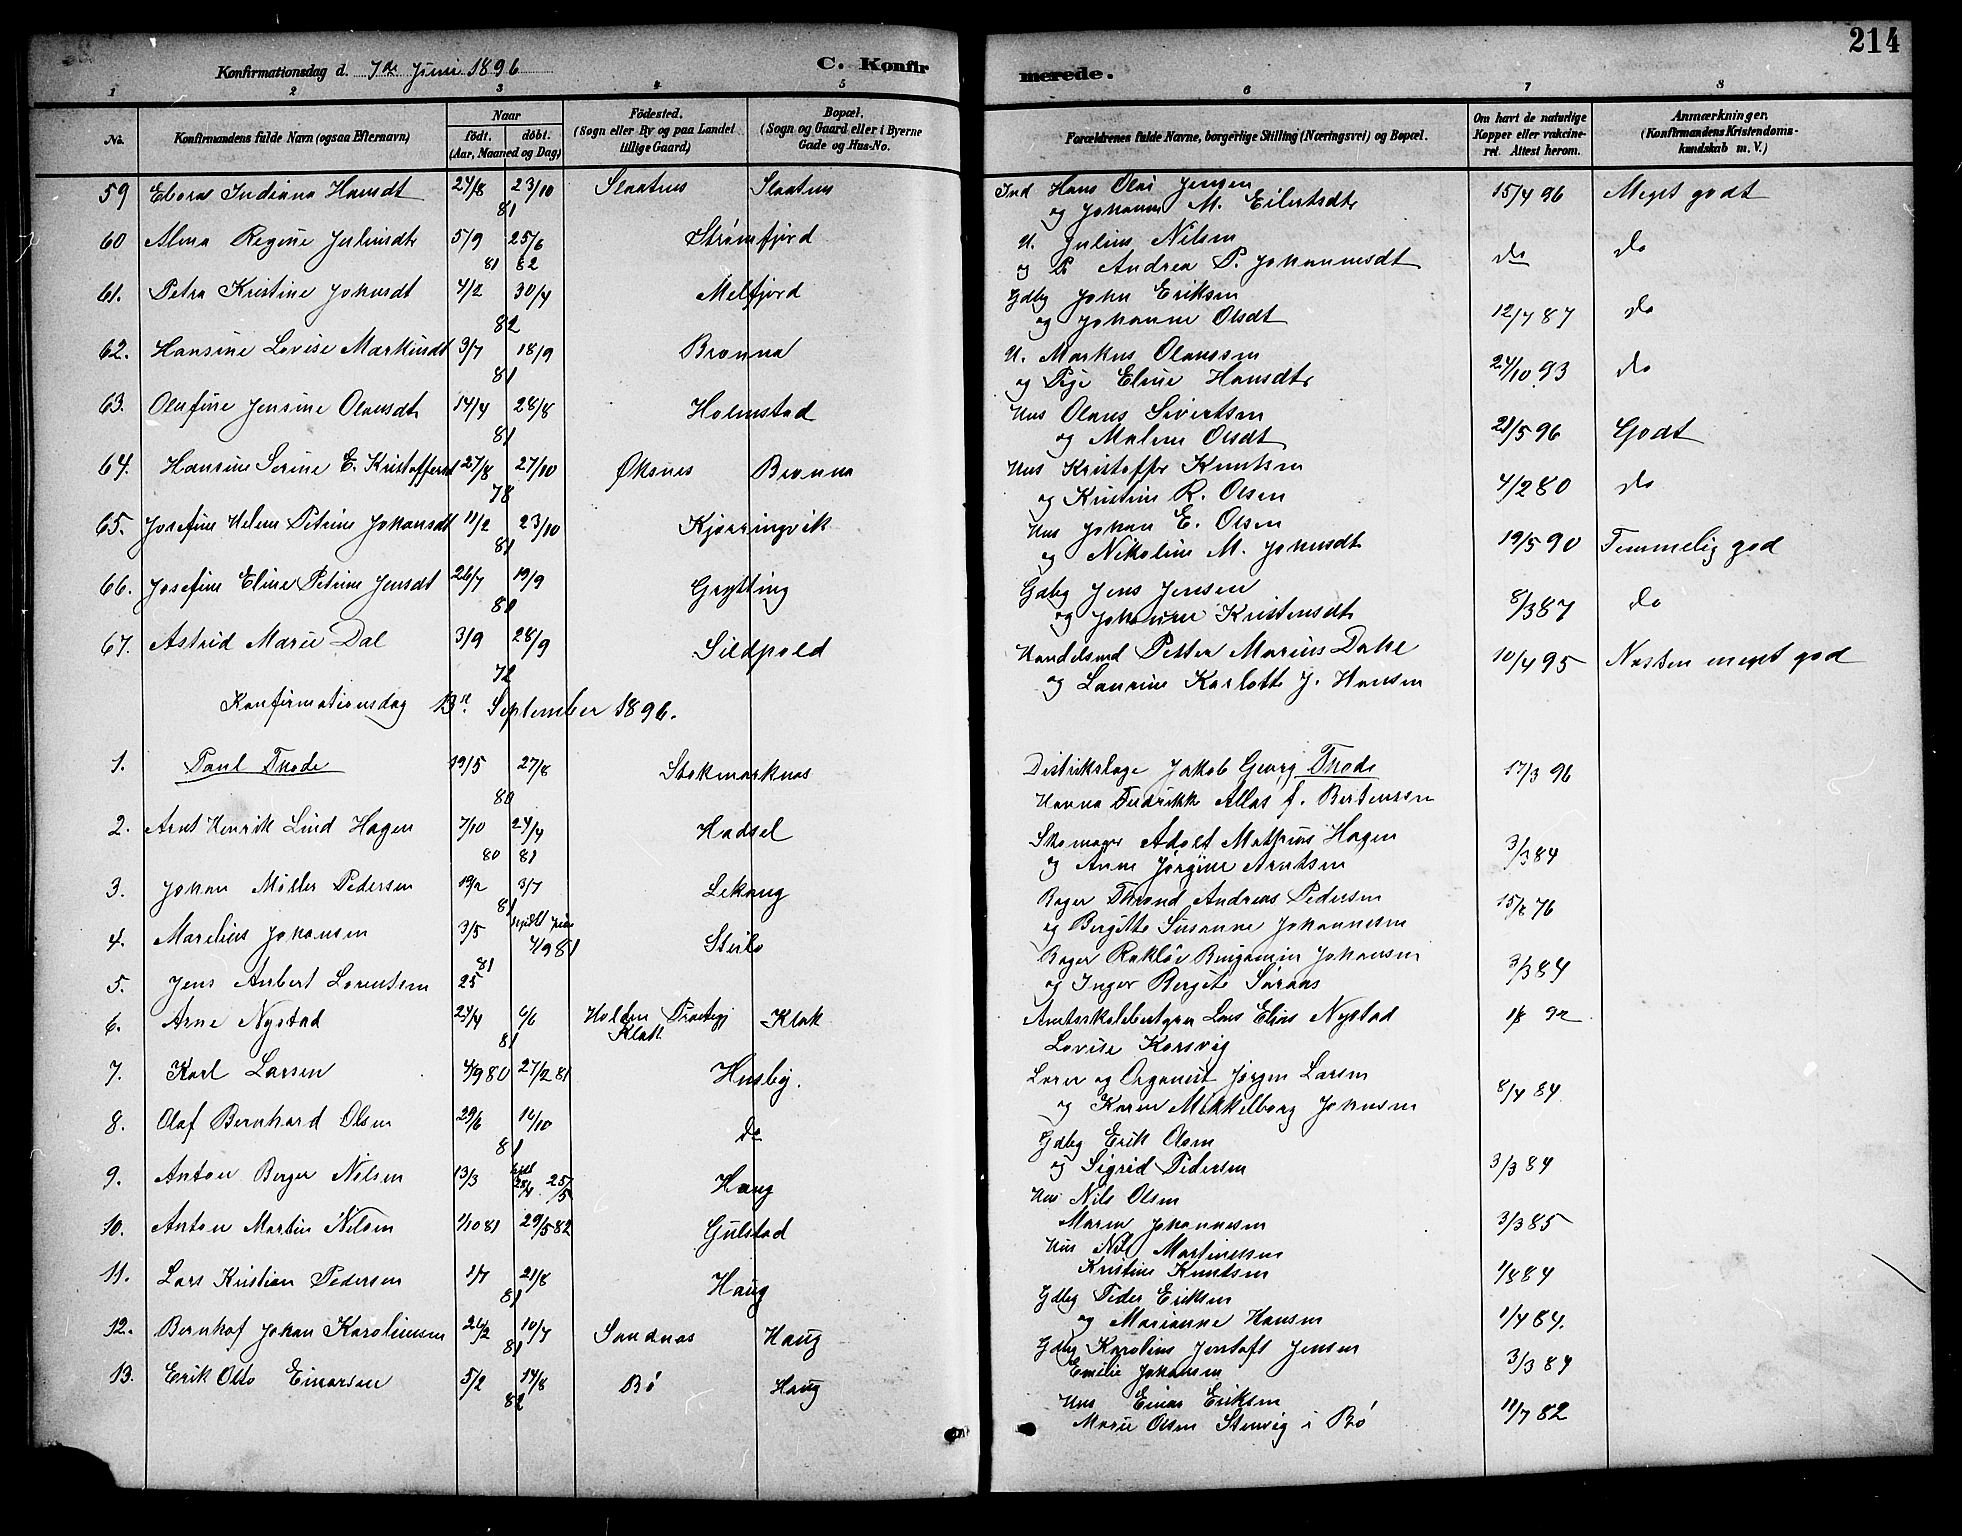 214
Konfirmationsdag d. 7de Juni 1896
C. Konfirmerede.
1 2 3 4 5 6 7 8
No.
Konfirmandens fulde Navn (ogsaa Efternavn)
Naar
födt. döbt.
(Aar, Maaned og Dag)
Födested.
(Sogn eller By og paa Landet
tillige Gaard)
Bopæl.
(Sogn og Gaard eller i Byerne
Gade og Hus-No.
Forældrenes fulde Navne, borgerlige Stilling (Næringsvei) og Bopæl.
Om havt de naturlige
Kopper eller vakcine-
ret. Attest herom.
Anmærkninger.
(Konfirmandens Kristendoms-
kundskab m. V.)
59 Ebora Indiana Hansdt 24/8 81 23/10 Slaatnes Slaatnes Ind Hans Olai Jensen 15/4 96 Meget godt
og Johanne M. Eilertsdtr
60 Alma Regine Juliusdtr 5/9 81 25/6 82 Strømfjord U. Julius Nilsen do do
og Andrea P. Johannesdt
61. Petra Kristine Johnsdt 4/2 30/4 82 Melfjord Gdbg John Eriksen 12/7 87 do
og Johanne Olsdt
62. Hansine Lovise Markusdt 3/7 18/9 81 Brønna U. Markus Olaussen 24/10 93 do
og Pige Eline Hansdtr
63. Olufine Jensine Olausdt 14/4 28/8 81 Holmstad Hus Olaus Sivertsen 21/5 96 Godt
og Malene Olsdt
64. Hansine Serine E. Kristoffersd 27/8 27/10 78 Øksnes Brønna Hus Kristoffer Knutsen 4/2 80 do
og Kristine R. Olsen
65. Josefine Helene Petrine Johansdt 11/2 23/10 81 Kjørringvik Hus Johan E. Olsen 19/5 90 Temmelig god
og Nikoline M. Johnsdt
66. Josefine Eline Petrine Jensdt 26/7 19/9 81 Grytting Gdbg Jens Jensen 8/3 87 do
og Johanne Kristensdtr
67. Astrid Marie Dal 3/9 28/9 72 Sildpold Handelsmd Petter Marius Dahl 10/4 95 Næsten meget god
og Laurine Karlotte J. Hansen
Konfirmationsdag 13de September 1896.
1. Paul Thode 19/5 27/8 80 Stokmarknæs Distriktslæge Jakob Georg Thode 17/3 96
Hanna Fredrikke Allas f. Berentsen
2. Arnt Henrik Lind Hagen 7/10 80 24/4 81 Hadsel Skomager Adolf Mathias Hagen 3/3 84
og Anne Jørgine Arntsen
3. Johan Möller Pedersen 19/2 3/7 81 Lekang Bager Thrond Andreas Pedersen 15/8 76
og Bergitte Susanne Johannesen
4. Marelius Johansen 3/5 81 4/9 81 Steilo Bager Benjamin Johansen 3/3 84
og Inger Bergete Saraas
5. Jens Anbert Lorentsen 25
6. Arne Nystad 24/4 6/6 81 Holden Præstegj Klat. Klok Amtsskolebestyrer Lars Elias Nystad 92
Lovise Korsvig
7. Karl Larsen 4/9 80 27/2 81 Husby. Lærer og Organist Jørgen Larsen 8/4 84
og Karen Mikkelborg Johnsen
8. Olaf Bernhard Olsen 29/6 16/10 81 do Gdbg Erik Olsen 3/3 84
og Sigrid Pedersen
9. Anton Berger Nilsen 13/3 25/5 Haug Hus Nils Olsen 3/3 85
Maren Johannesen
10. Anton Martin Nilsen 1/10 81 29/5 82 Gulstad Hus Nils Martinussen 1/8 84
Kristine Knudsen
11. Lars Kristian Pedersen 1/7 21/8 81 Haug Gdbg Peder Eriksen 1/4 84.
og Marianne Hansen
12. Bernhof Johan Karoliussen 26/2 10/7 81 Sandnæs Haug Gdbg Karolius Jentoft Jensen 3/3 84
Emilie Johansen
13. Erik Olso Einarsen 5/2 14/8 82 Bö Haug Hus Einar Eriksen 11/7 82
Marie Olsen Stenvig i Bö